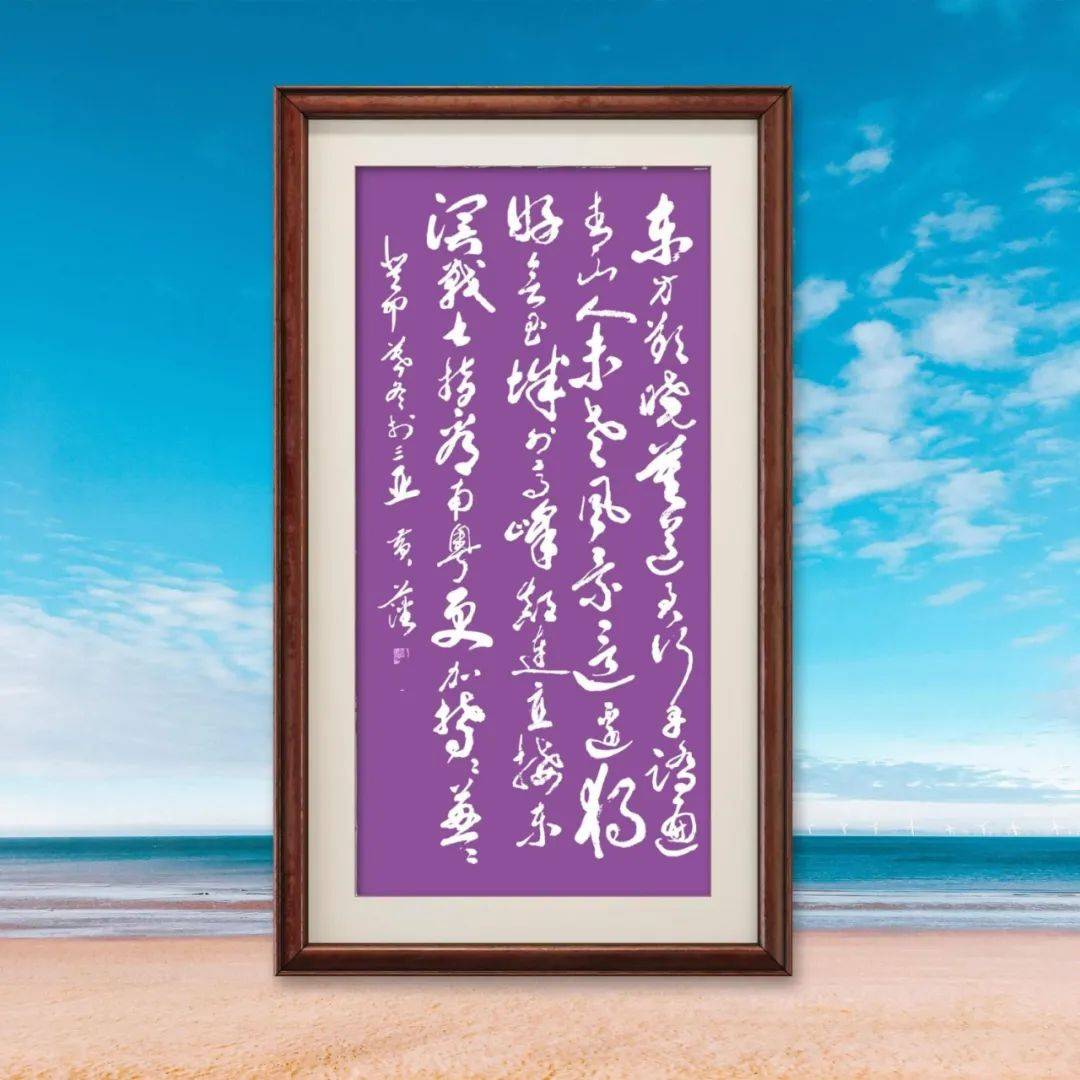 东方欲晓莫道君行早踏遍
青山人未老风景这边独
好会昌城外高峰颠连直接东
溟战士指看南粤更加郁郁葱葱
癸卯暮冬於三亚 黄